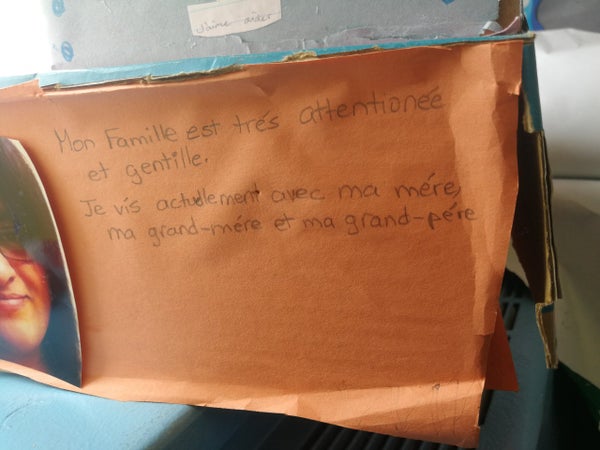 J'aime aider
Mon Famille est trés attentionée
et gentille.
Je vis actuellement avec ma mére,
ma grand-mére et ma grand-pére